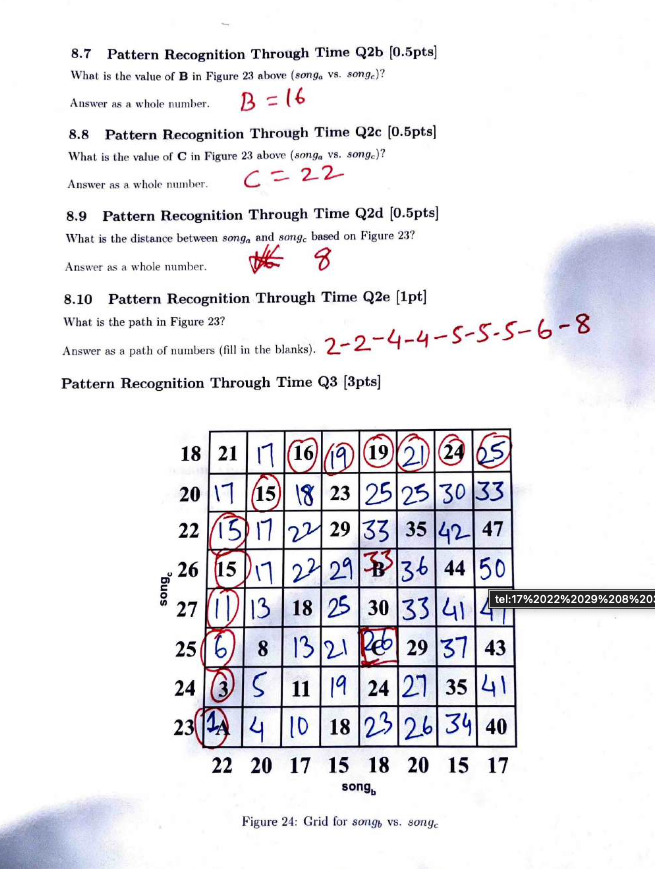 8.7 Pattern Recognition Through Time Q2b [0.5pts]
What is the value of B in Figure 23 above (songₐ vs. song꜀)?
Answer as a whole number. B = 16
8.8 Pattern Recognition Through Time Q2c [0.5pts]
What is the value of C in Figure 23 above (songₐ vs. song꜀)?
Answer as a whole number. C = 22
8.9 Pattern Recognition Through Time Q2d [0.5pts]
What is the distance between songₐ and song꜀ based on Figure 23?
Answer as a whole number. 8
8.10 Pattern Recognition Through Time Q2e [1pt]
What is the path in Figure 23?
Answer as a path of numbers (fill in the blanks). 2-2-4-4-5-5-5-6-8
Pattern Recognition Through Time Q3 [3pts]
18 21 17 16 19 19 21 24 25
20 17 15 18 23 25 25 30 33
22 15 17 22 29 33 35 42 47
26 15 17 22 29 33 B 36 44 50
27 11 13 18 25 30 33 41
tel:17%2022%2029%208%203
25 6 8 13 21 26 C 29 37 43
24 3 5 11 19 24 27 35 41
23 1 A 4 10 18 23 26 34 40
22 20 17 15 18 20 15 17
song꜀
song_b
Figure 24: Grid for song_b vs. song꜀